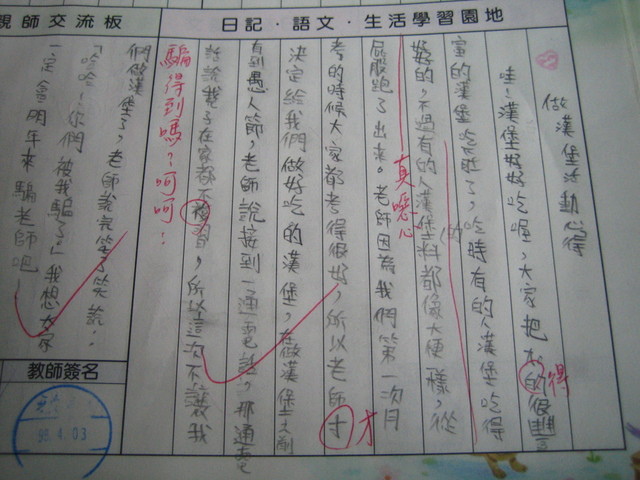 親師交流板
日記·語文·生活學習園地
做漢堡活動心得
哇!漢堡好好吃喔,大家把的很豐
得
富的漢堡吃完了,吃時有的人漢堡吃得
好的,不過有的人漢堡料都像大便一樣,從
屁股跑了出來。老師因為我們第一次月
真噁心
考的時候大家都考得很好,所以老師十
才
決定給我們做好吃的漢堡,在做漢堡之前
有到愚人節,老師說接到一通電話,那通電
話說我們在家都不複習,所以這次不讓我
騙得到嗎?呵呵!
們做漢堡了,老師說完笑了笑說:
「哈哈!你們被我騙了。」我想大家
一定會明年來騙老師吧!
教師簽名
98.4.03